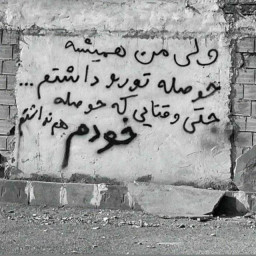 ولی من همیشه
حوصله تورو داشتم...
حتی وقتایی که حوصله
خودم هم نداشتم